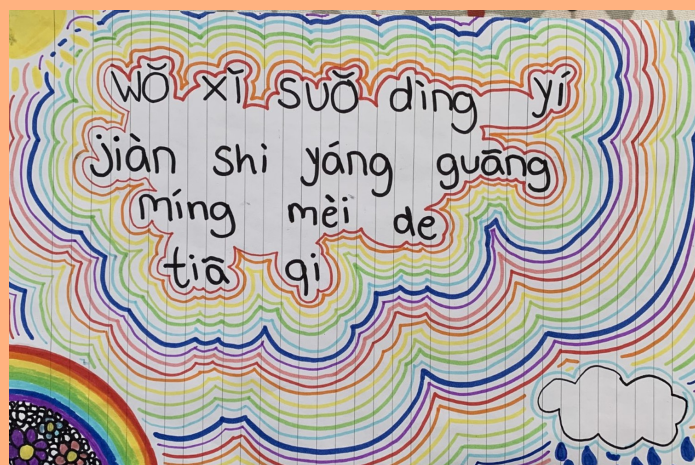 wǒ xǐ suǒ ding yí
jiàn shi yáng guāng
míng mèi de
tiā qi